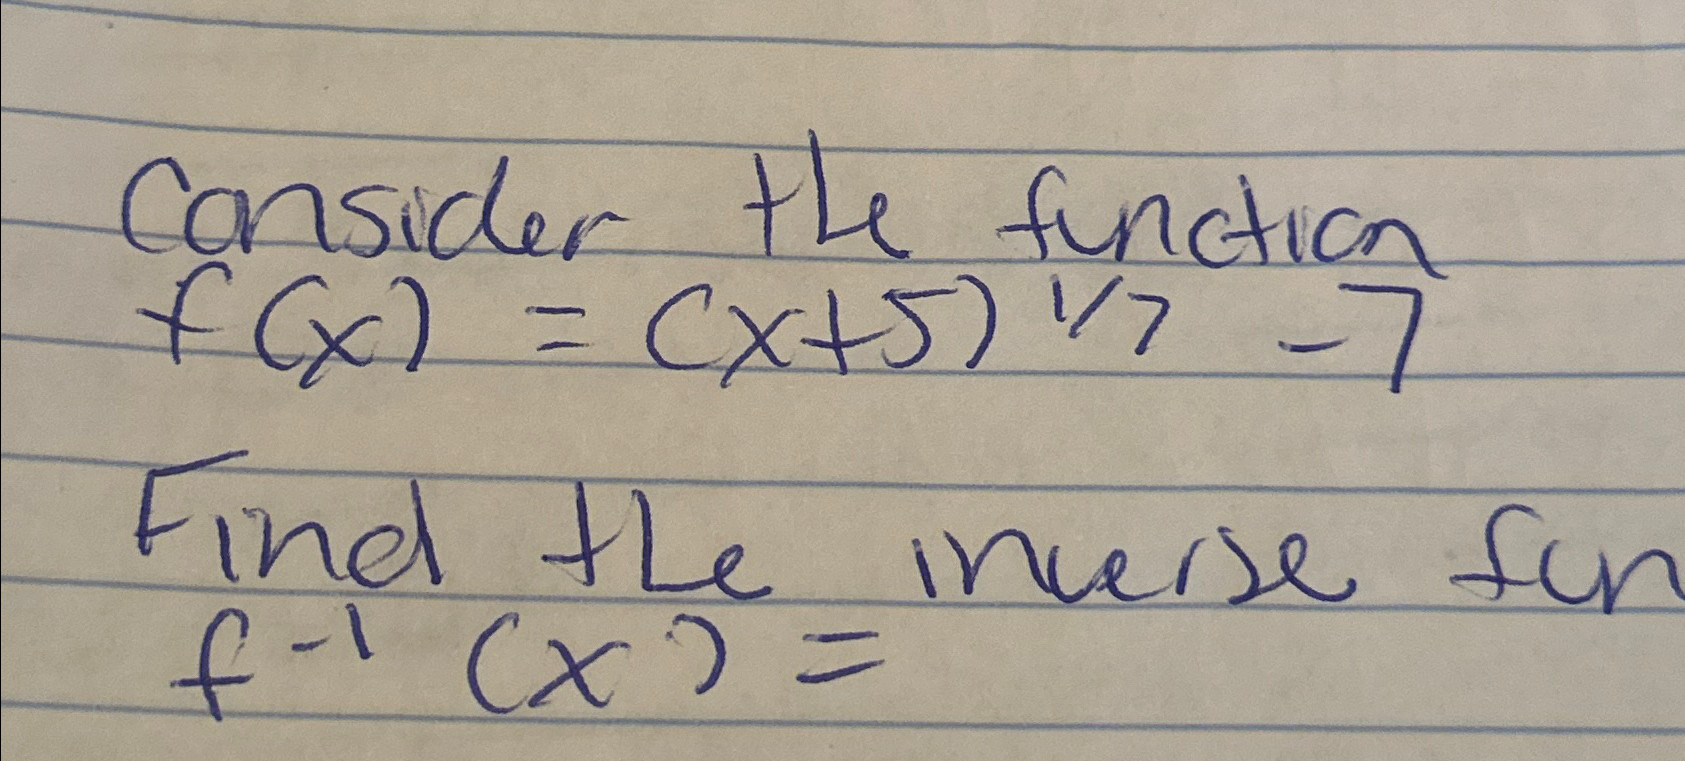 Consider the function
f(x) = (x+5) 1/7 -7
Find the inverse fun
f -1 (x) =